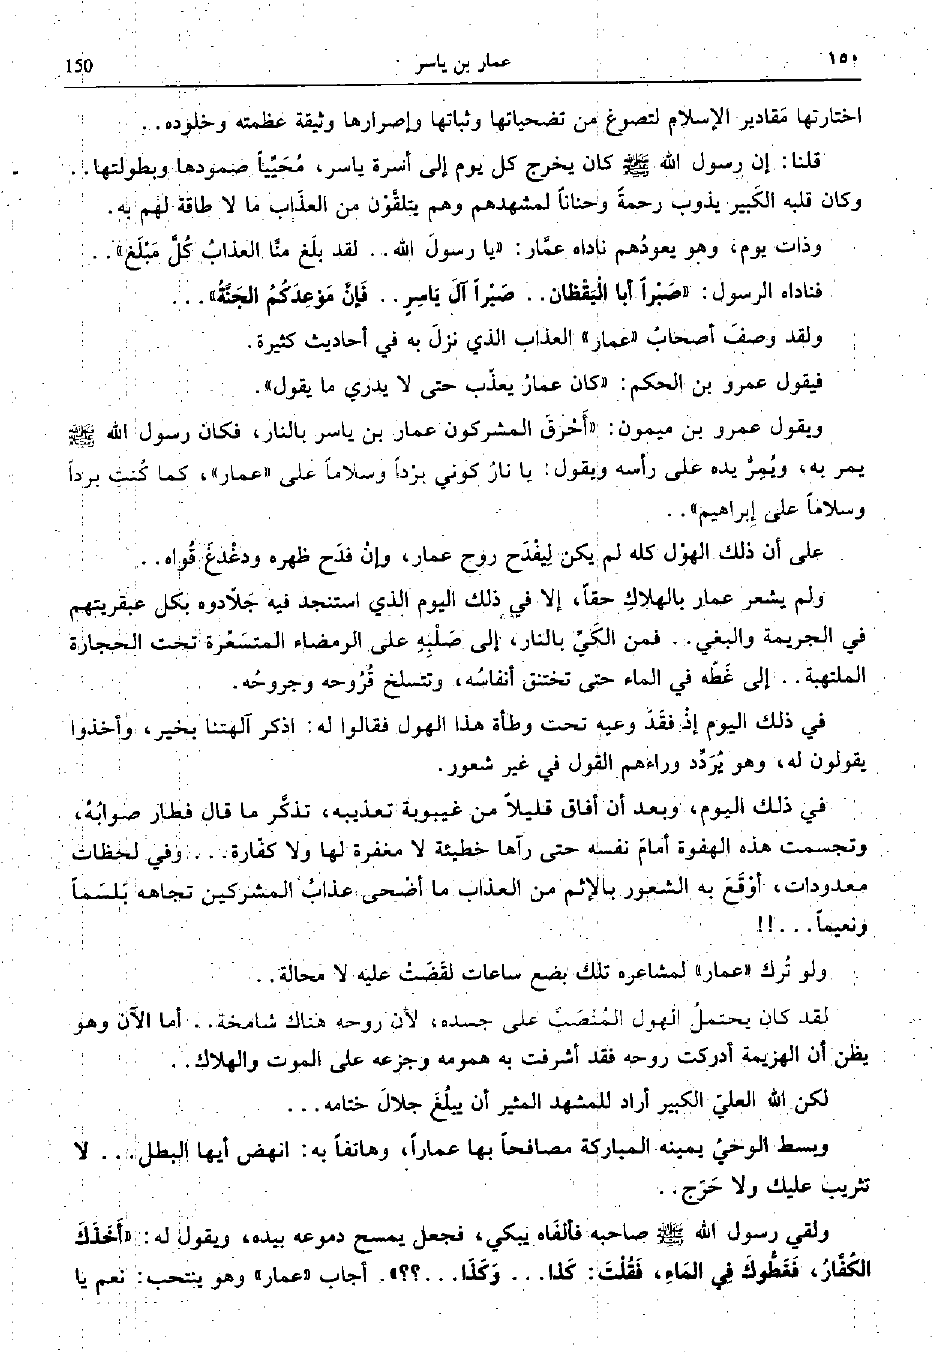 ١٥٠ عمار بن ياسر 150
اختارتها مَقادير الإسلام لتصوغ من تضحياتها وثباتها وإصرارها وثيقة عظمته وخلوده..
قلنا: إن رسول الله ﷺ كان يخرج كل يوم إلى أسرة ياسر، مُحَيِّياً صمودها وبطولتها..
وكان قلبه الكَبير يذوب رحمةً وحناناً لمشهدهم وهم يتلقَّوْن من العذَاب مَا لا طاقة لهم به.
وذات يوم، وهو يعودُهم نَاداه عمَّار: «يا رسولَ الله.. لقد بلَغ منَّا العذابُ كُلَّ مَبْلَغ»..
فنَاداه الرسول: «صَبْراً أبا الْيَقْظان.. صَبْراً آلَ يَاسِرٍ.. فَإنَّ مَوْعِدَكُمُ الجَنَّةُ»...
ولقد وصفَ أصحابُ «عمار» العذاب الذي نزلَ به في أحاديث كثيرة.
فيقول عمرو بن الحكم: «كان عمارُ يعذّب حتى لا يدري ما يقول».
ويقول عمرو بن ميمون: «أَحْرَقَ المشركون عمار بن ياسر بالنار، فكان رسول الله ﷺ
يمر به، ويُمِرُّ يده على رأسه ويقول: يا نارُ كوني برْداً وسلاماً على «عمار»، كما كُنتِ برداً
وسلاماً على إبراهيم»..
على أن ذلك الهوْل كله لم يكن لِيَفْدَح روح عمار، وإنْ فدَح ظهره ودغْدغَ قُواه..
ولم يشعر عمار بالهلاكِ حقاً، إلا في ذلك اليوم الذي استنجد فيه جَلاّدوه بكل عبقريتهم
في الجريمة والبغي.. فمن الكَيِّ بالنار، إلى صَلْبِهِ على الرمضاء المتسَعِّرة تحت الحجارة
الملتهبة.. إلى غَطّه في الماء حتى تختنق أنفاسُه، وتتسلخ قُرُوحه وجروحُه.
في ذلك اليوم إذْ فقَدَ وعيه تحت وطأة هذا الهول فقالوا له: اذكر آلهتنا بخير، وأخذوا
يقولون له، وهو يُرَدِّد وراءهم القول في غير شعور.
في ذلك اليوم، وبعد أن أفاق قليلاً من غيبوبة تعذيبه، تذكَّر ما قال فطار صوابُهُ،
وتجسمت هذه الهفوة أمامَ نفسه حتى رآها خطيئة لا مغفرة لها ولا كفّارة... وفي لحظات
معدودات، أوْقَعَ به الشعور بالإثم من العذاب ما أضْحى عذابُ المشركين تجاهه بَلسَماً
ونعيماً...!!
ولو تُرك «عمار» لمشاعره تلك بضع ساعات لقَضَتْ عليه لا محالة..
لقد كان يحتملُ الهول المُنصَبَّ على جسده، لأن روحه هناك شامخة.. أما الآن وهو
يظن أن الهزيمة أدركت روحه فقد أشرفت به همومه وجزعه على الموت والهلاك..
لكن الله العليّ الكبير أراد للمشهد المثير أن يبلُغَ جلالَ ختامه...
وبسط الوحيُ يمينه المباركة مصافحاً بها عماراً، وهاتفاً به: انهض أيها البطل... لا
تثريب عليك ولا حَرَج..
ولقي رسول الله ﷺ صاحبه فألفَاه يبكي، فجعل يمسح دموعه بيده، ويقول له: «أَخَذَكَ
الكُفَّارُ، فَغَطُّوكَ فِي المَاءِ، فَقُلْتَ: كَذا... وَكَذَا...؟؟». أجاب «عمار» وهو ينتحب: نعم يا